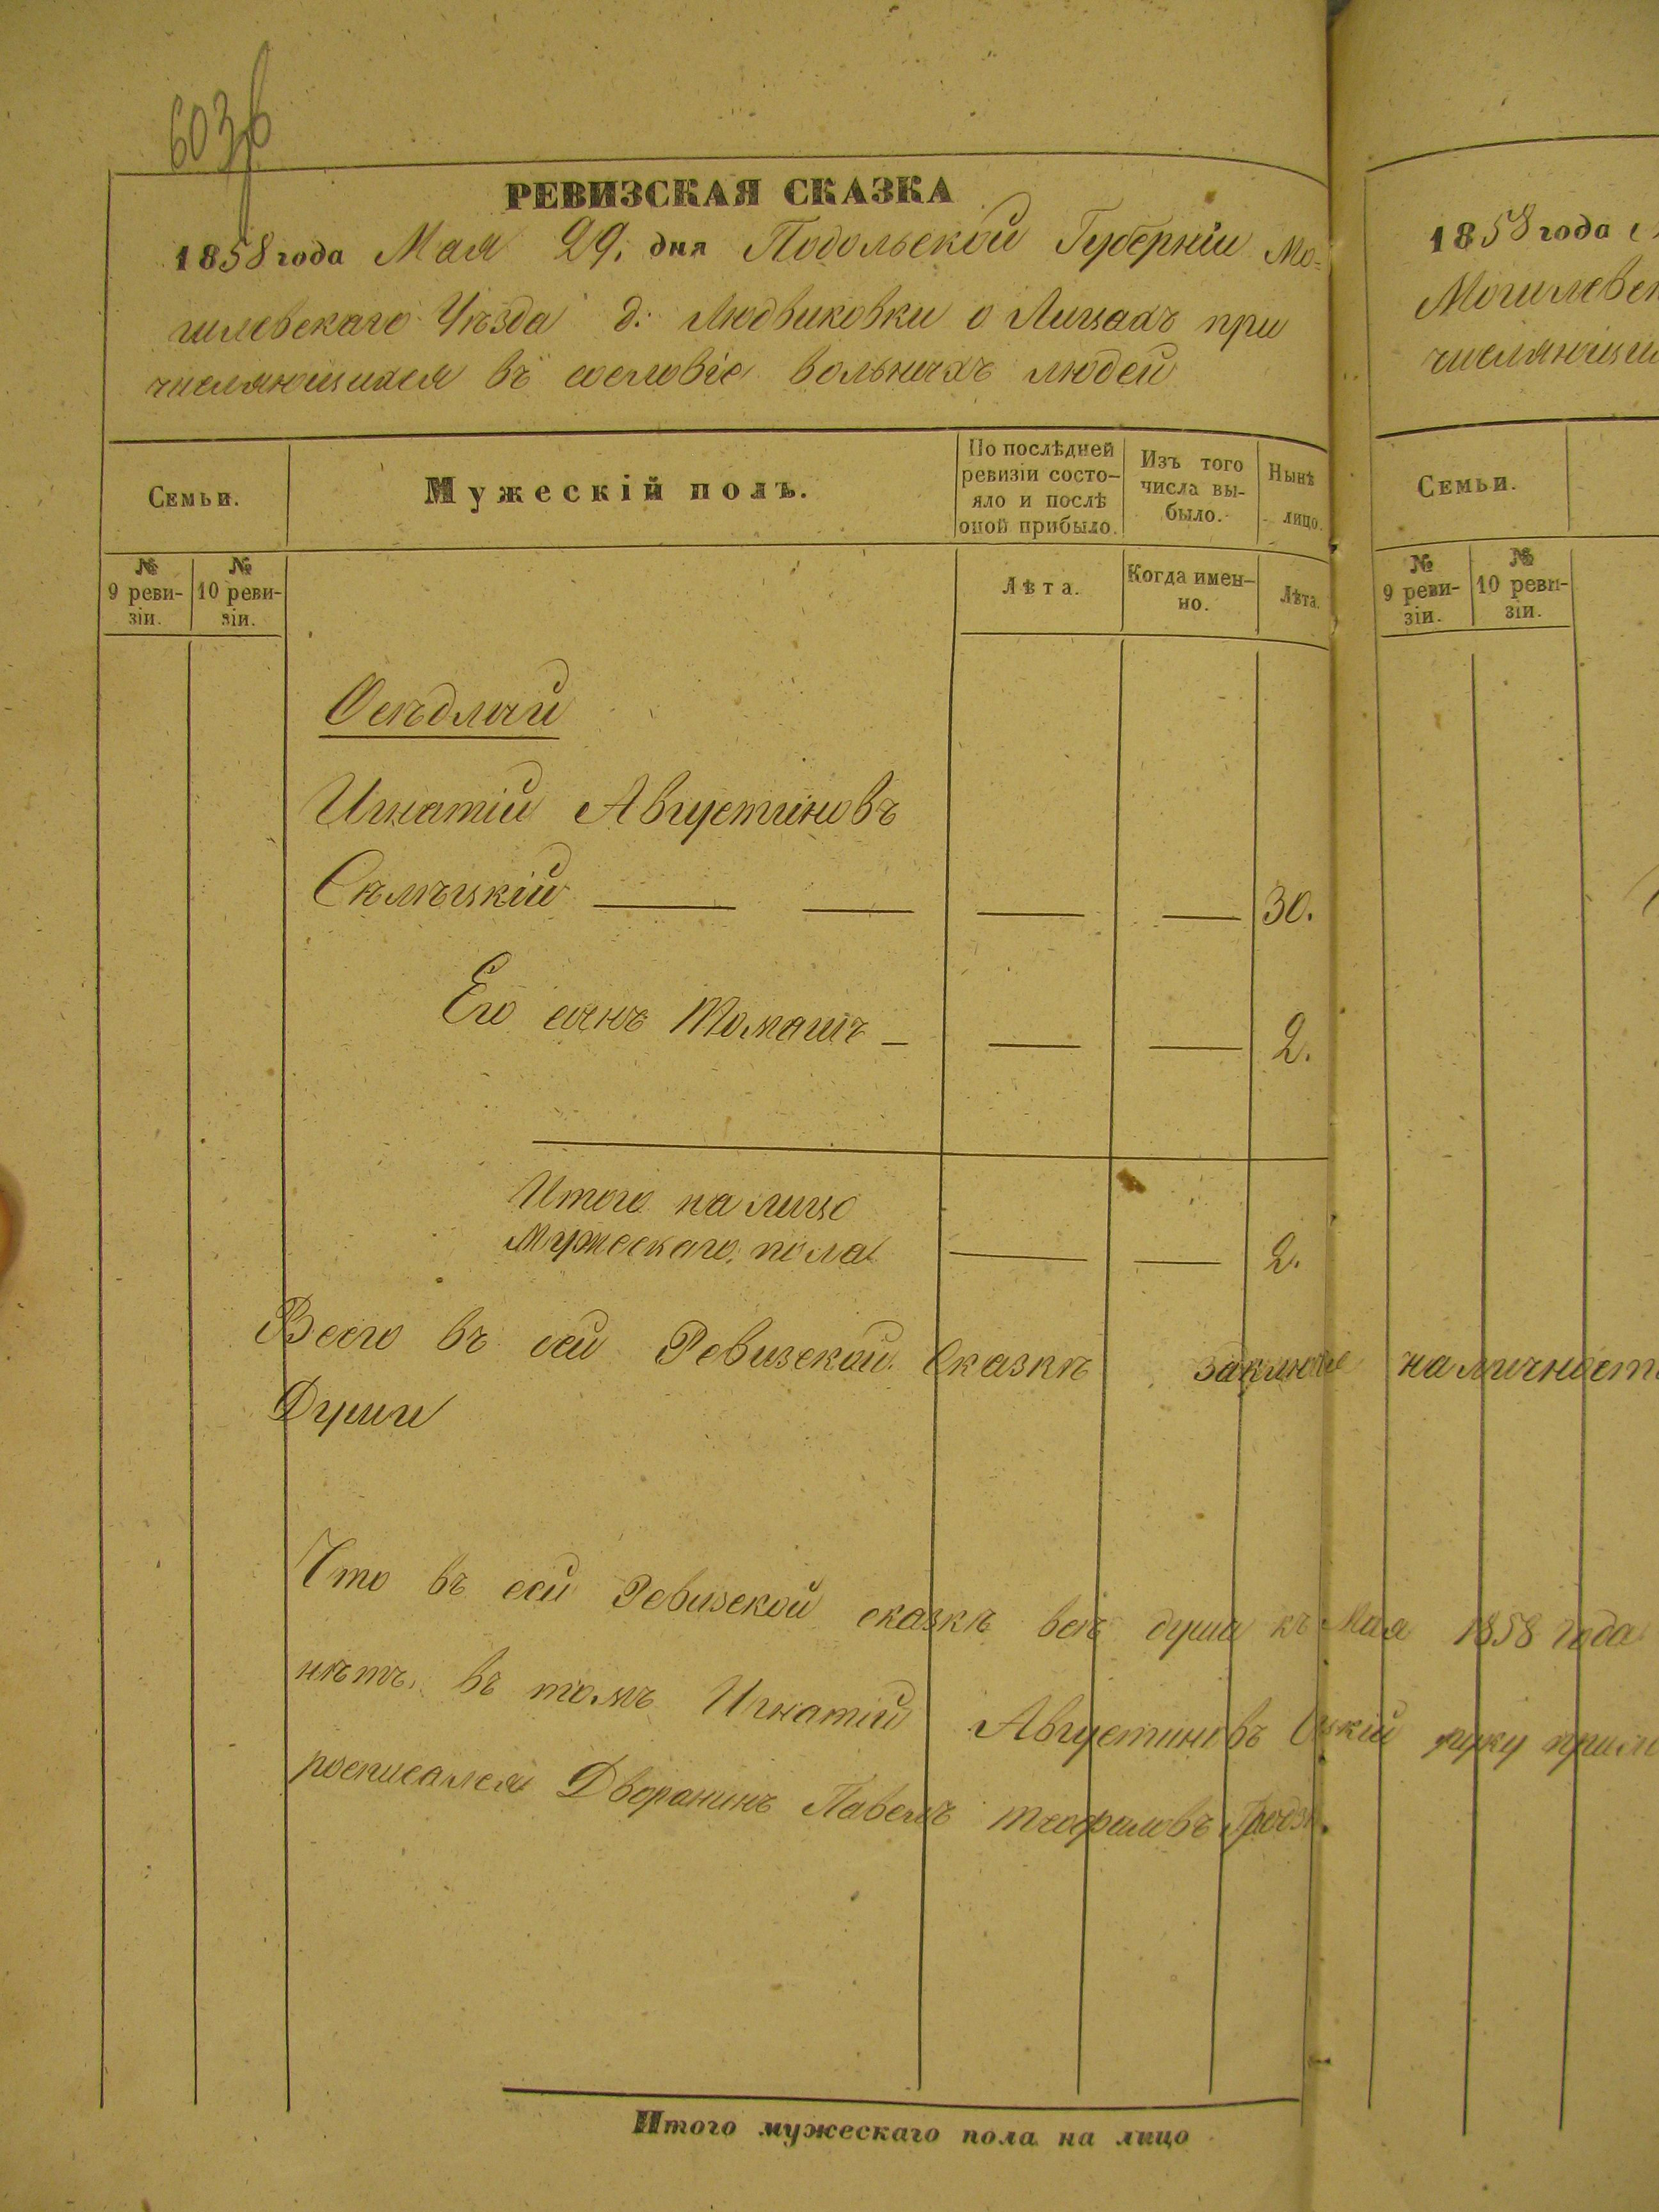 603
РЕВИЗСКАЯ СКАЗКА
1858 года Мая 29. дня Подольской Губерніи Мо=
гилевскаго Уѣзда д: Людвиковки о Лицахъ при
числяющихся въ сословіе вольныхъ людей
Семьи.
Мужескій полъ.
По послѣдней
ревизіи состо-
яло и послѣ
оной прибыло.
Изъ того
числа вы-
было.
Нынѣ
лицо.
№
9 реви-
зіи.
№
10 реви-
зіи.
Лѣта.
Когда имен-
но.
Лѣта.
Осѣдлый
Игнатій Августиновъ
30.
Его сынъ Томашъ
2.
Итого на лицо
Мужескаго пола
2.
Всего въ сей Ревизской Сказкѣ
Души
Что въ сей Ревизской сказкѣ всѣ души къ Мая 1858 года
нѣтъ, въ томъ Игнатій Августиновъ руку
росписался Дворянинъ Павелъ Теофиловъ
Итого мужескаго пола на лицо
1858 года
Семьи.
№
9 реви-
зіи.
№
10 реви-
зіи.